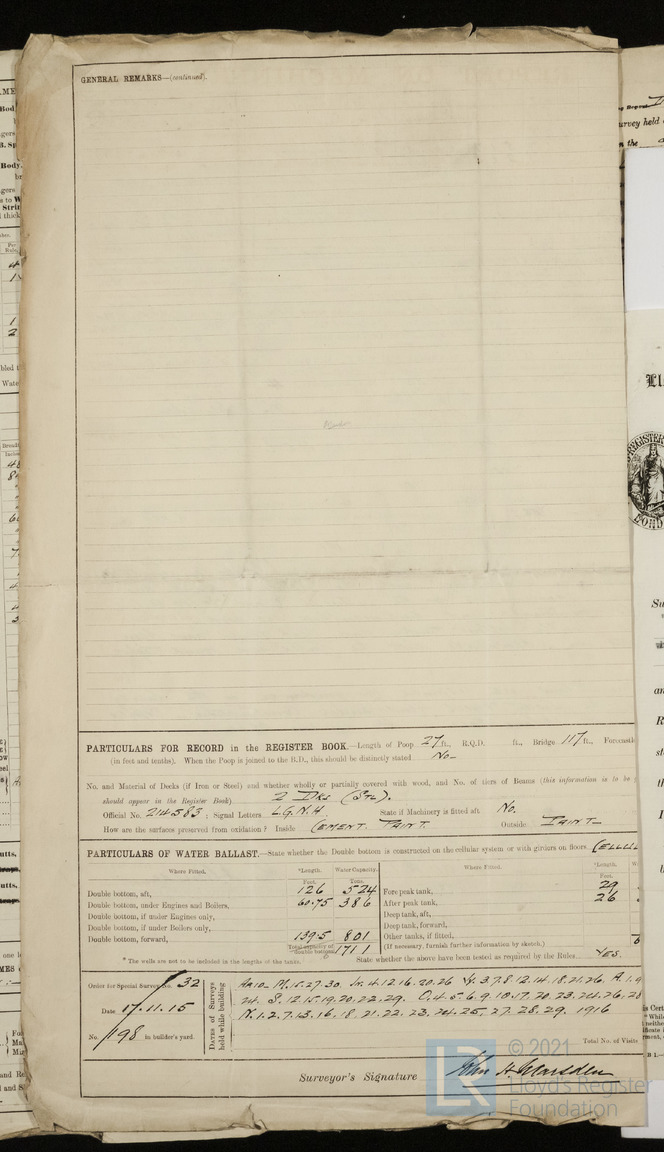 GENERAL REMARKS—(continued).
PARTICULARS FOR RECORD in the REGISTER BOOK.—Length of Poop 27 ft., R.Q.D. ft., Bridge 117 ft., Forecastle
(in feet and tenths). When the Poop is joined to the B.D., this should be distinctly stated No
No. and Material of Decks (if Iron or Steel) and whether wholly or partially covered with wood, and No. of tiers of Beams (this information is to be
should appear in the Register Book) 2 Dks (Stl).
Official No. 214583 ; Signal Letters L.G.N.H. State if Machinery is fitted aft No.
How are the surfaces preserved from oxidation? Inside CEMENT. PAINT. Outside PAINT
PARTICULARS OF WATER BALLAST.—State whether the Double bottom is constructed on the cellular system or with girders on floors.
Where Fitted. *Length. Water Capacity. Where Fitted. *Length.
Feet. Tons. Feet.
Double bottom, aft, 126 324 Fore peak tank, 29
Double bottom, under Engines and Boilers, 60.75 386 After peak tank, 26
Double bottom, if under Engines only, Deep tank, aft,
Double bottom, if under Boilers only, Deep tank, forward,
Double bottom, forward, 139.5 801 Other tanks, if fitted,
Total capacity of double bottom 1711 (If necessary, furnish further information by sketch.)
* The wells are not to be included in the lengths of the tanks. State whether the above have been tested as required by the Rules YES.
Order for Special Survey No. 32
Date 17.11.15
No. 198 in builder's yard.
Dates of Surveys held while building
M. 15. 27. 30. 4. 12. 16. 20. 26 3. 7. 8. 12. 14. 18. 21. 26. A. 1. 9
24. S. 12. 15. 19. 20. 22. 29. O. 4. 5. 6. 9. 10. 17. 20. 23. 24. 26. 28
N. 1. 2. 7. 13. 16. 18. 21. 22. 23. 24. 25. 27. 28. 29. 1916
Total No. of Visits
Surveyor's Signature John H. Marsden
© 2021
Lloyd's Register
Foundation
LR